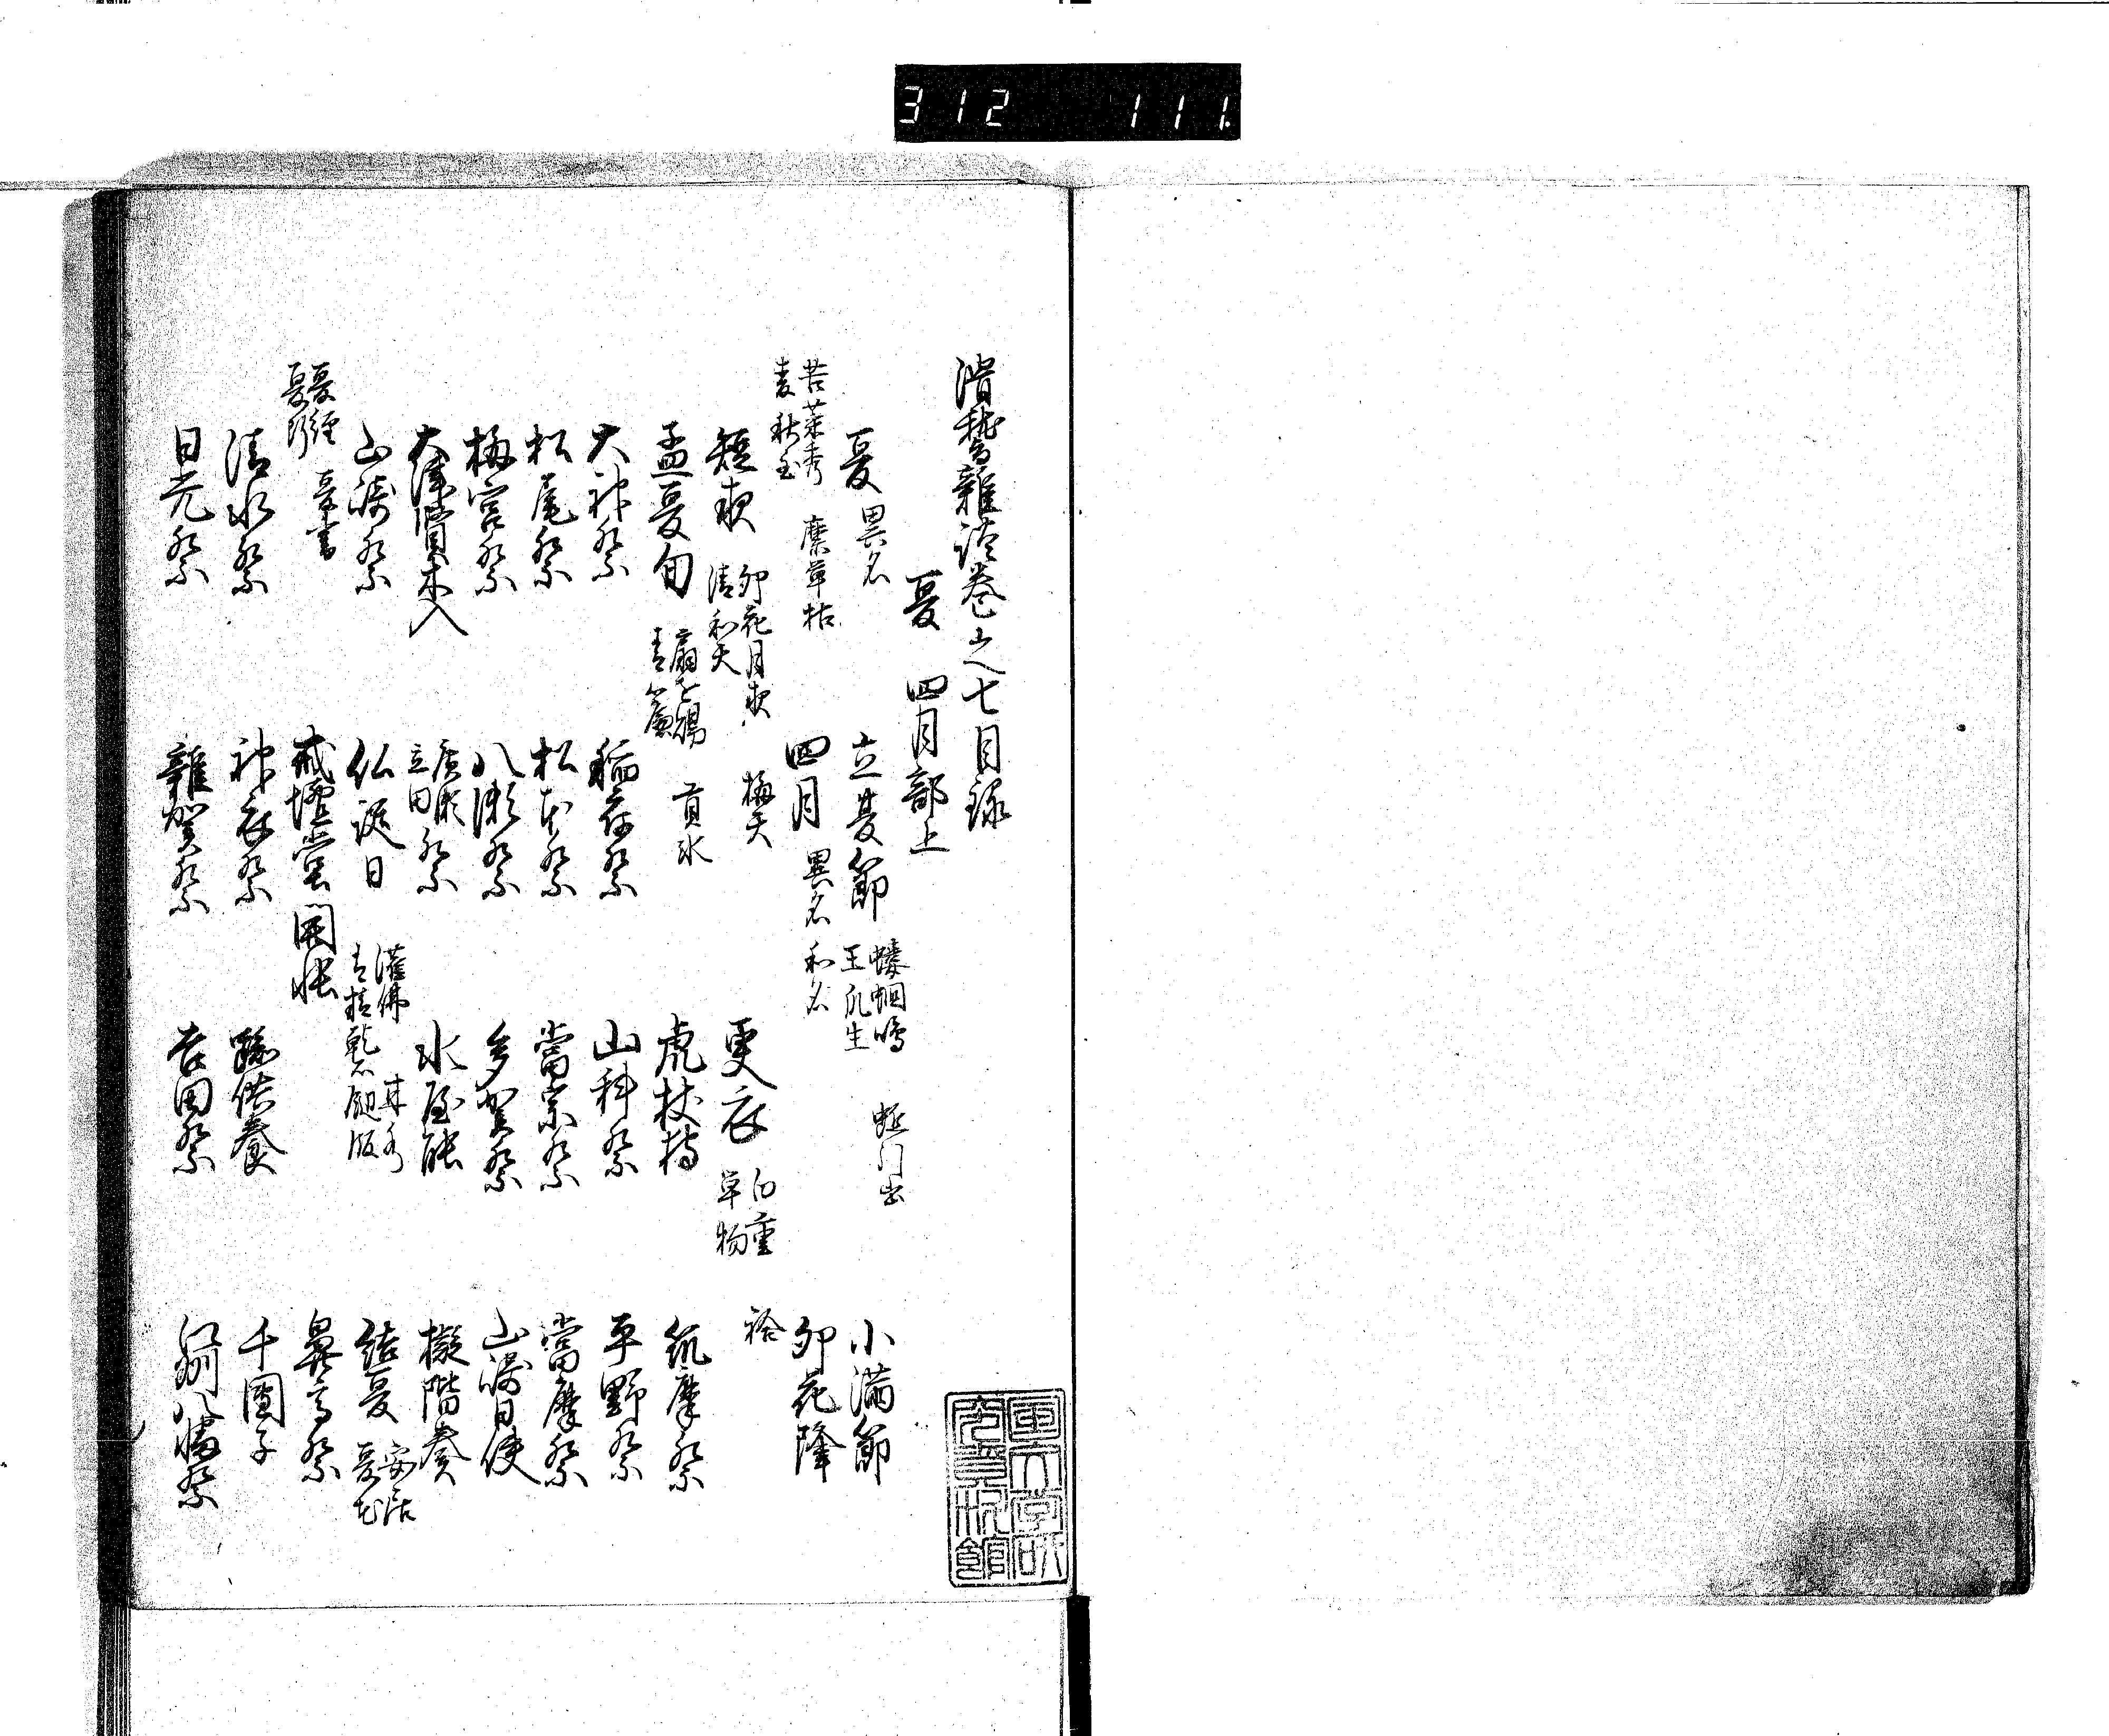 312 111
滑稽雑談巻之七目録
夏 四月部上
夏 異名 立夏節 螻蟈鳴 蚯蚓出 王瓜生 小満節
苦菜秀 麋草枯 麦秋至 四月 異名 和名 卯花降
短夜 卯花月夜 清和天 梅天 更衣 白重 単物 袷
孟夏旬 扇を賜 貢氷 青簾 虎杖 筑摩祭
大神祭 稲荷祭 山科祭 平野祭
松尾祭 松本祭 當宗祭 當麻祭
梅宮祭 八瀬祭 多賀祭 山崎日使
大津賓木入 廣瀬 立田 祭 水屋能 擬階奏
山崎祭 仏誕日 灌佛 結夏 安居 夏花
夏経 夏断 夏書 戒壇堂開帳
清水祭 神衣祭 供養 千團子
日光祭 雑賀祭 吉田祭 八幡祭
国文学研究資料館